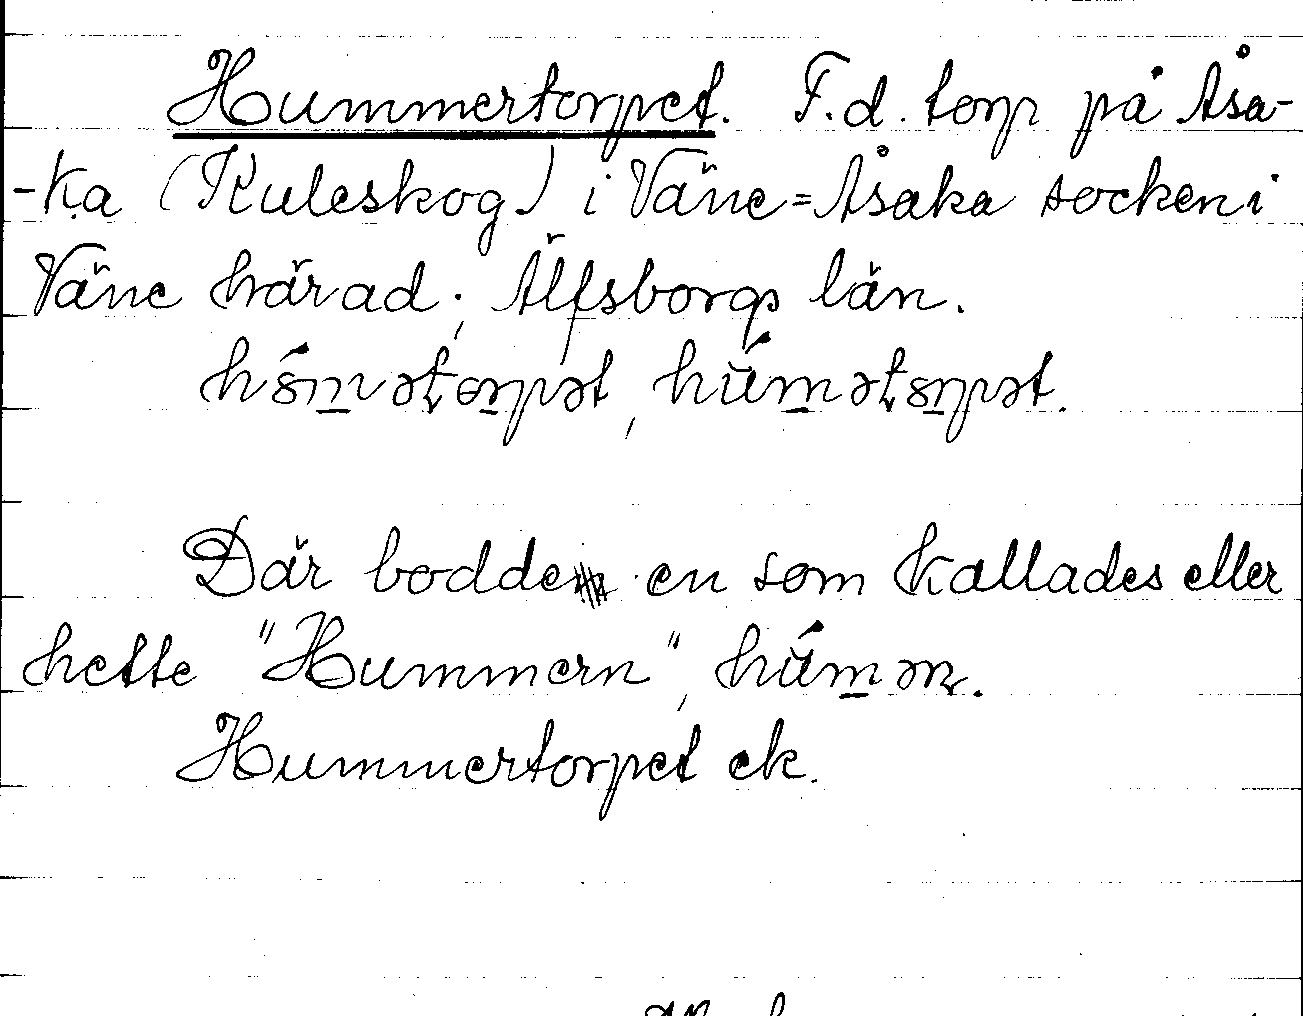 Hummertorpet. F.d. torp på Åsa-
-ka (Kuleskog) i Väne=Åsaka socken i
Väne härad, Älfsborgs län.
Där bodde en som kallades eller
hette "Hummern",
Hummertorpet ek.